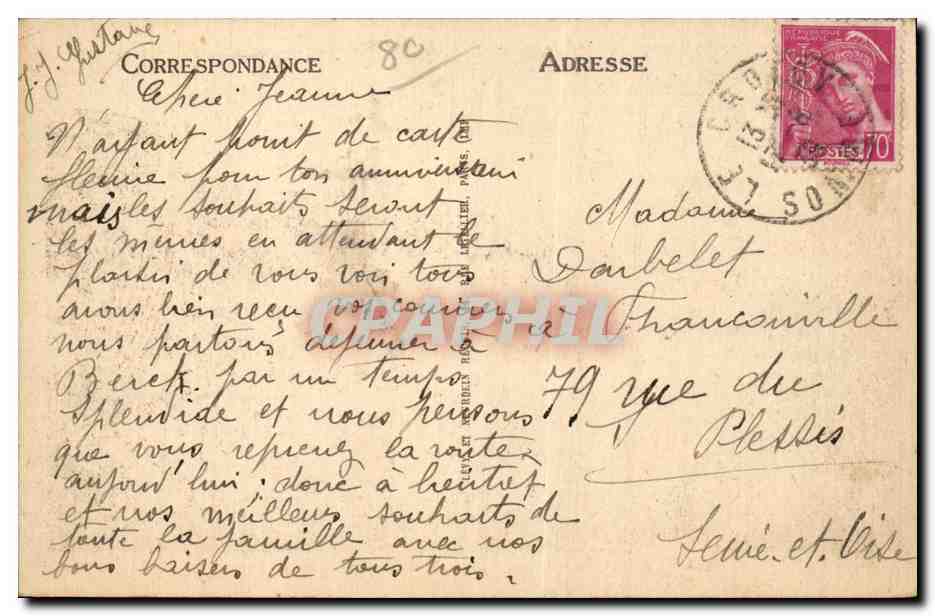 J. J. Gustave
80
CORRESPONDANCE
ADRESSE
Cheri Jeanne
N'ayant point de carte
fleurie pour ton anniversair
mais les souhaits seront
les mêmes en attendant le
plaisir de vous voir tous
avons bien reçu vos courriers
nous partons déjeuner à
Berck par un temps
splendide et nous pensons
que vous reprenez la route
aujourd'hui. donc à bientot
et nos meilleurs souhaits de
toute la famille avec nos
bons baisers de tous trois.
Madame
Darbelet
à Franconville
79 rue du
Plessis
Seine-et-Oise
LEVY ET NEURDEIN REUNIS, RUE LETELLIER, PARIS. IMP
REPUBLIQUE FRANÇAISE
POSTES 70
LE CROTOY
SOMME
CPAPHIL